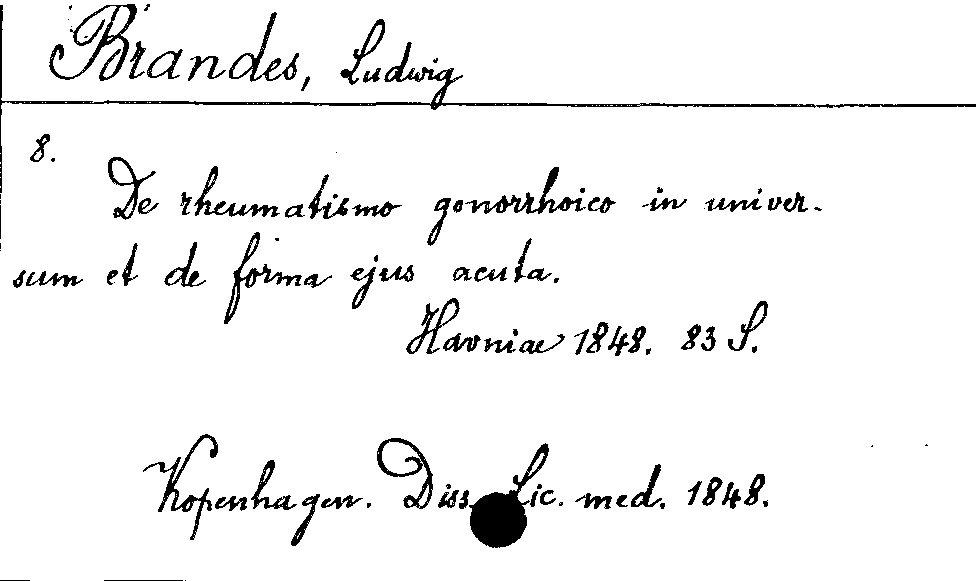 Brandes, Ludwig
8.
De rheumatismo gonorrhoico in univer-
sum et de forma ejus acuta.
Havniae 1848. 83 S.
Kopenhagen. Diss. Lic. med. 1848.